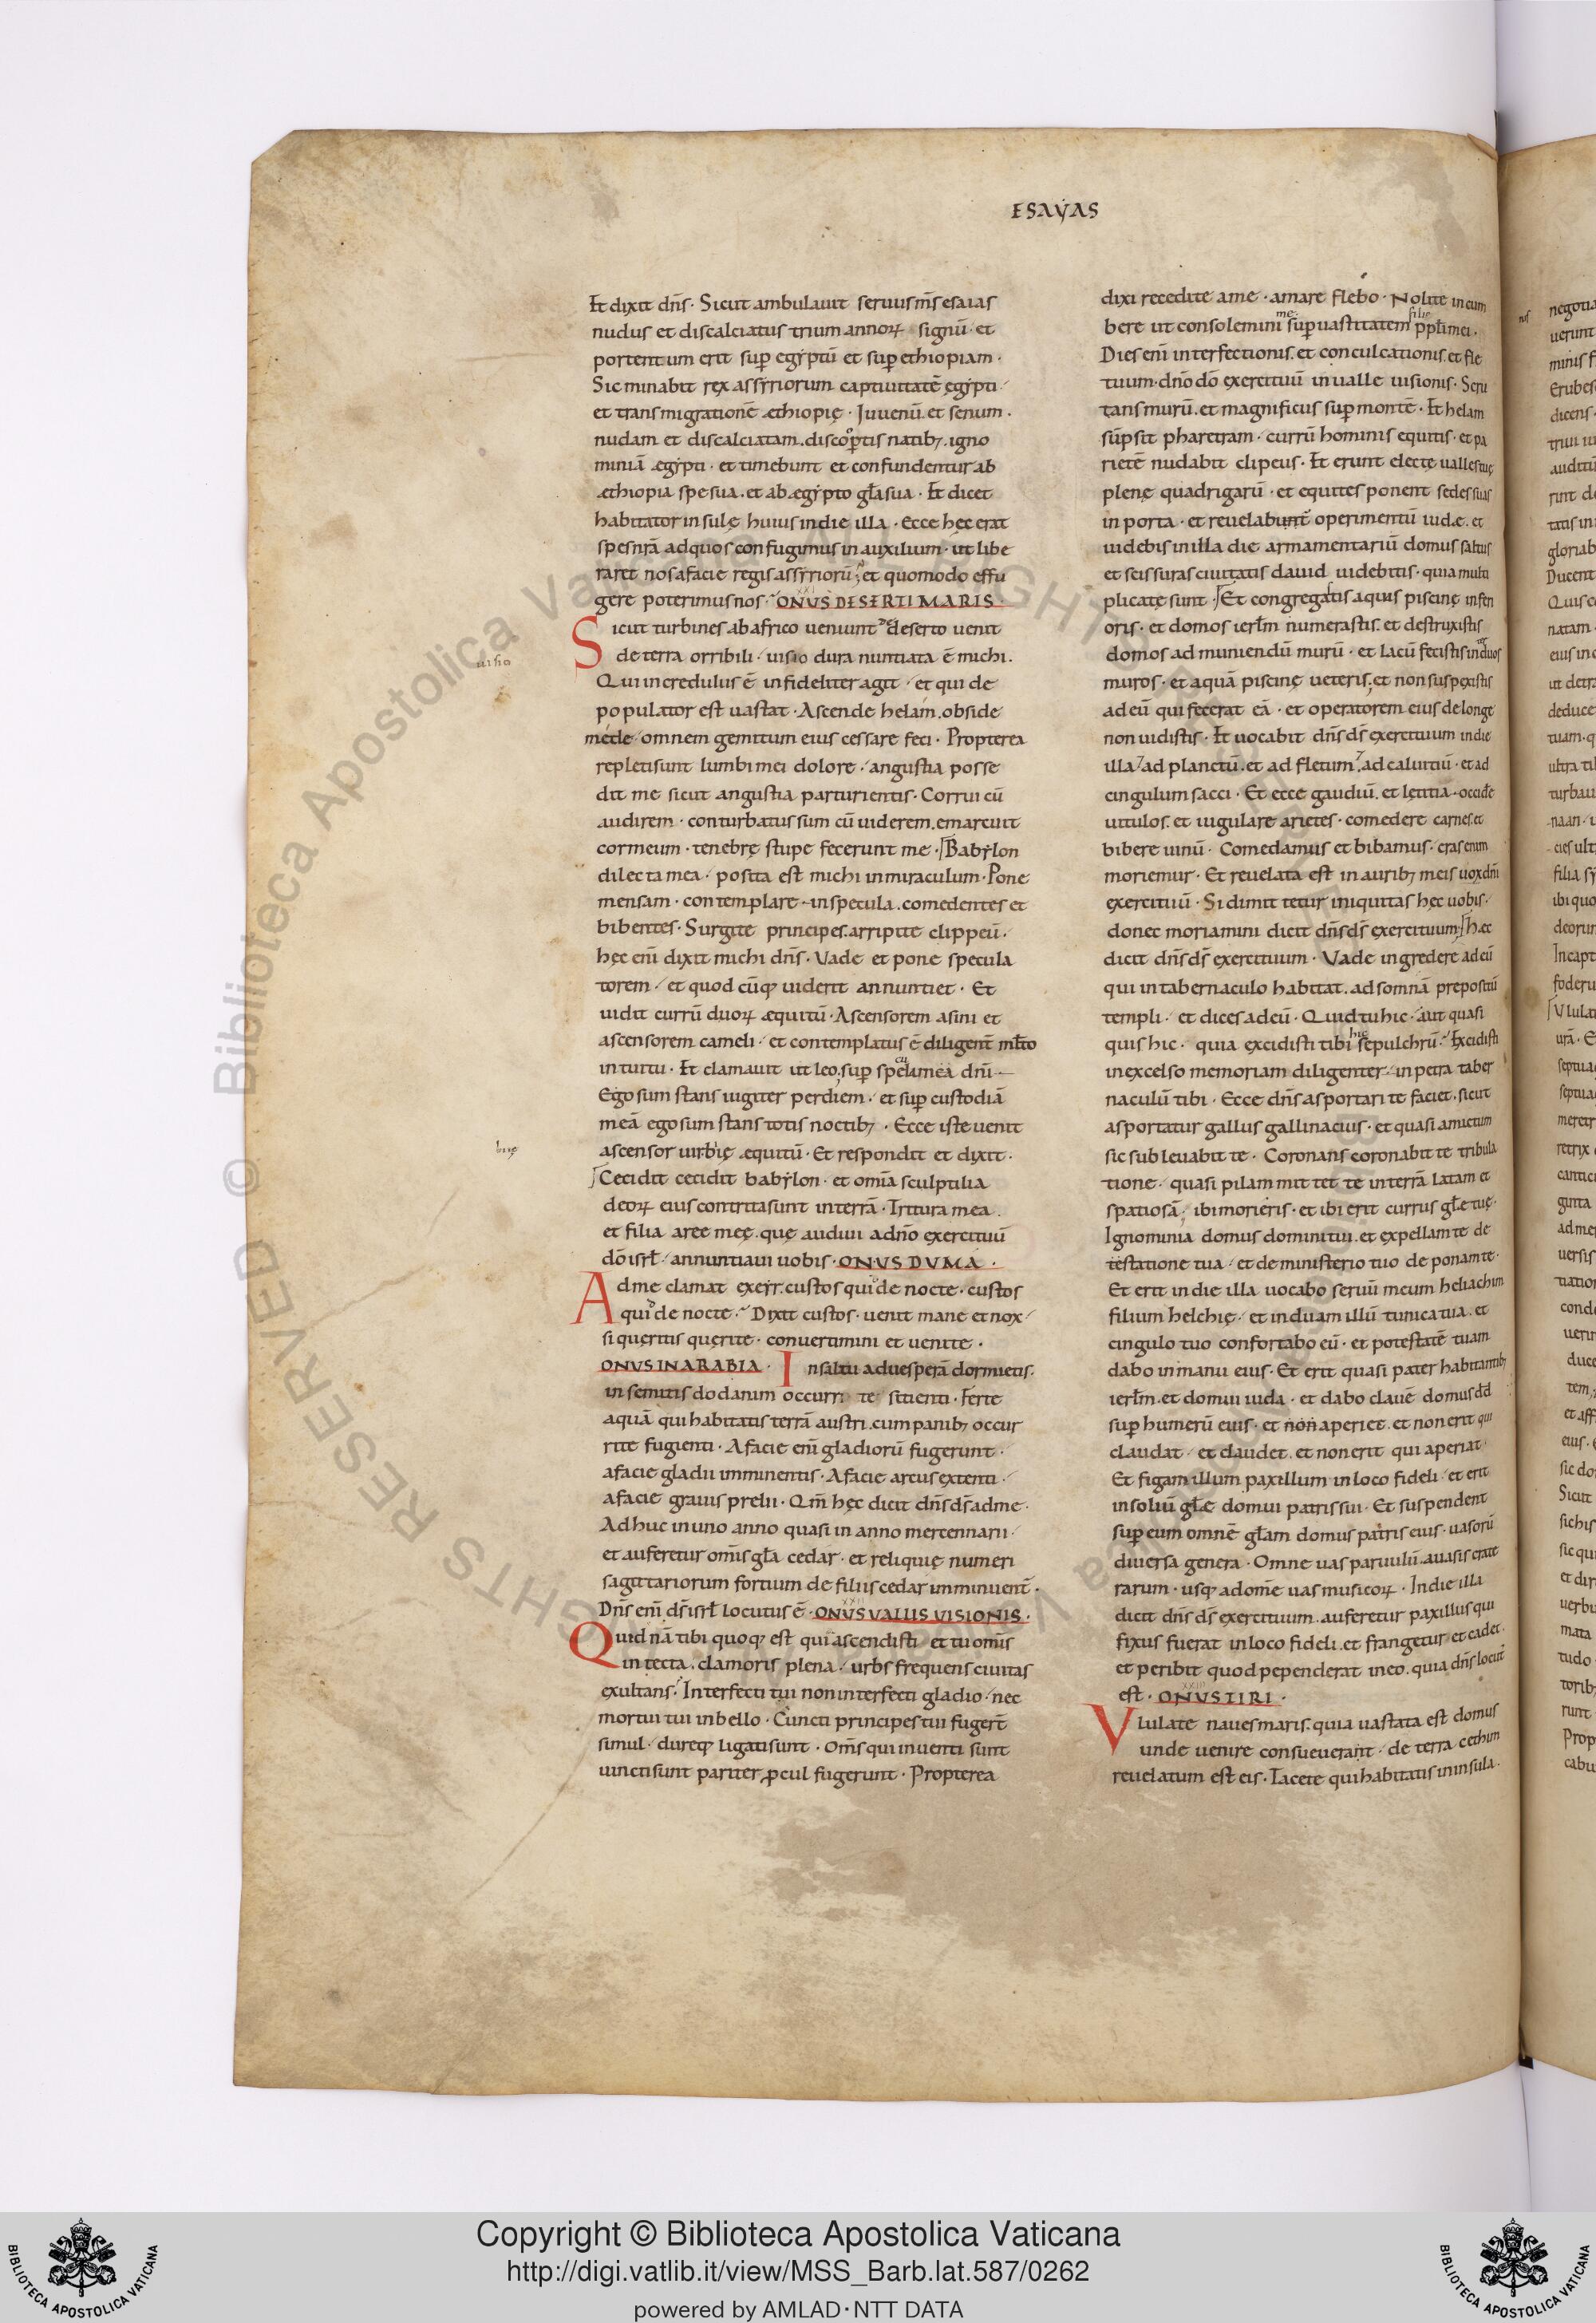 ESAYAS
Et dixit dn̄s · Sicut ambulauit seruus m̄s esaias
nudus et discalciatus trium annoꝝ signū · et
portentum erit sup̄ egẏptū et sup̄ ethiopiam ·
Sic minabit rex assẏriorum captiuitatē egẏpti ·
et transmigrationē æthiopię · Iuuenū et senum ·
nudam et discalciatam . discoop̄tis natibꝫ . igno
miniā ægẏpti · et timebunt et confundentur ab
æthiopia spe sua . et ab ægẏpto gl̄a sua · Et dicet
habitator insulę huius in die illa · Ecce hęc erat
spes nr̄a ad quos confugimus in auxilium · ut libe
raret nos a facie regis assẏriorū ; et quomodo effu
gere poterimus nos · ONUS DESERTI MARIS ·
Sicut turbines ab africo ueniunt deserto uenit
uisio
de terra orribili · uisio dura nuntiata ē michi .
Qui incredulus ē infideliter agit · et qui de
populator est uastat · Ascende helam . obside
mede · omnem gemitum eius cessare feci · Propterea
repleti sunt lumbi mei dolore · angustia posse
dit me sicut angustia parturientis · Corrui cū
audirem · conturbatus sum cū uiderem . emarcuit
cor meum · tenebrę stupe fecerunt me · Babẏlon
dilecta mea · posita est michi in miraculum · Pone
mensam · contemplare · in specula . comedentes et
bibentes · Surgite principes . arripite clippeū ·
hęc enī dixit michi dn̄s · Vade et pone specula
torem · et quodcūqꝫ uiderit annuntiet · Et
uidit currū duoꝝ æquitū · Ascensorem asini et
ascensorem cameli · et contemplatus ē diligent̄ ml̄to
intuitu · Et clamauit ut leo , sup̄ specu
Ego sum stans iugiter per diem · et sup̄ custodiā
meā ego sum stans totis noctibꝫ · Ecce iste uenit
bigę
ascensor uirbię æquitū · Et respondit et dixit ·
Cecidit cecidit babẏlon · et om̄ia sculptilia
deoꝝ eius contrita sunt in terrā · Tritura mea .
et filia aree meę . quę audiui a dn̄o exercituū
dō isrl̄ · annuntiaui uobis · ONUS DVMA ·
Ad me clamat exeẏr . custos quid de nocte · custos
quid de nocte · Dixit custos · uenit mane et nox ·
si quęritis quęrite · conuertimini et uenite ·
ONVS IN ARABIA · In saltu ad uesperā dormietis ·
in semitis dodanim occurri te sitienti · Ferte
aquā qui habitatis terrā austri . cum panibꝫ occur
rite fugienti · A facie enī gladiorū fugerunt ·
a facie gladii imminentis · A facie arcus extenti ·
a facie grauis prelii · Qm̄ hęc dicit dn̄s ds̄ ad me ·
Adhuc in uno anno quasi in anno mercennarii ·
et auferetur om̄is gl̄a cedar · et reliquię numeri
sagittariorum fortium de filiis cedar imminuent̄ ·
Dn̄s enī ds̄ isrl̄ locutus ē · ONUS VALLIS VISIONIS ·
Quid nā tibi quoqꝫ est quia ascendisti et tu om̄is
in tecta . clamoris plena · urbs frequens ciuitas
exultans · Interfecti tui non interfecti gladio · nec
mortui tui in bello · Cuncti principes tui fuger̄t
simul · dureqꝫ ligati sunt · Om̄s qui inuenti sunt
uincti sunt pariter , ꝓcul fugerunt · Propterea
dixi recedite a me · amare flebo · Nolite incum
bere ut consolemini me sup̄ uastitatem filię ppl̄i mei ·
Dies enī interfectionis . et conculcationis . et fle
tuum · dn̄o dō exercituū in ualle uisionis · Scru
tans murū . et magnificus sup̄ montē · Et helam
sūpsit pharetram · currū hominis equitis · et pa
rietē nudabit clipeus · Et erunt electę ualles tuę
plenę quadrigarū · et equites ponent sedes suas
in porta · et reuelabunt operimentū iudæ . et
uidebis in illa die armamentariū domus saltus
et scissuras ciuitatis dauid uidebitis · quia multi
plicatę sunt · Et congregastis aquas piscinę inferi
oris · et domos ierl̄m numerastis . et destruxistis
domos ad muniendū murū · et lacū fecistis inter duos
muros · et aquā piscinę ueteris , et non suspexistis
ad eū qui fecerat eā · et operatorem eius de longe
non uidistis · Et uocabit dn̄s ds̄ exercituum in die
illa ad planctū . et ad fletum , ad caluitiū · et ad
cingulum sacci · Et ecce gaudiū . et lętitia · occide
uitulos . et iugulare arietes · comedere carnes . et
bibere uinū · Comedamus et bibamus · cras enim
moriemur · Et reuelata est in auribꝫ meis uox dn̄i
exercituū · Si dimittetur iniquitas hęc uobis ·
donec moriamini dicit dn̄s ds̄ exercituum · Hæc
dicit dn̄s ds̄ exercituum · Vade ingredere ad eū
qui in tabernaculo habitat . ad somnā prepositū
templi · et dices ad eū · Quid tu hic · aut quasi
quis hic · quia excidisti tibi hic sepulchrū · Excidisti
in excelso memoriam diligenter · in petra taber
naculū tibi · Ecce dn̄s asportari te faciet . sicut
asportatur gallus gallinacius · et quasi amictum
sic subleuabit te · Coronans coronabit te tribula
tione · quasi pilam mittet te in terrā latam et
spatiosā ; ibi morieris · et ibi erit currus gl̄e tuę ·
Ignominia domus domini tui . et expellam te de
testatione tua · et de ministerio tuo deponam te ·
Et erit in die illa uocabo seruū meum heliachim
filium helchię · et induam illū tunica tua . et
cingulo tuo confortabo eū · et potestatē tuam
dabo in manu eius · Et erit quasi pater habitantibꝫ
ierl̄m . et domui iuda · et dabo clauē domus dd̄
sup̄ humerū eius · et non aperiet . et non erit qui
claudat · et claudet . et non erit qui aperiat ·
Et figam illum paxillum in loco fideli · et erit
in soliū gl̄e domui patris sui · Et suspendent
sup̄ eum omnē gl̄am domus patris eius · uasorū
diuersa genera · Omne uas paruulū . a uasis crate
rarum · usqꝫ ad om̄e uas musicoꝝ · In die illa
dicit dn̄s ds̄ exercituum . auferetur paxillus qui
fixus fuerat in loco fideli . et frangetur · et cadet ·
et peribit quod pependerat in eo . quia dn̄s locut̄
est · ONUS TIRI ·
Vlulate naues maris . quia uastata est domus
unde uenire consueuerant · de terra cethim
reuelatum est eis · Tacete qui habitatis in insula ·
© Biblioteca Apostolica Vaticana ALL RIGHTS RESERVED
Copyright © Biblioteca Apostolica Vaticana
http://digi.vatlib.it/view/MSS_Barb.lat.587/0262
powered by AMLAD·NTT DATA
BIBLIOTECA APOSTOLICA VATICANA
BIBLIOTECA APOSTOLICA VATICANA